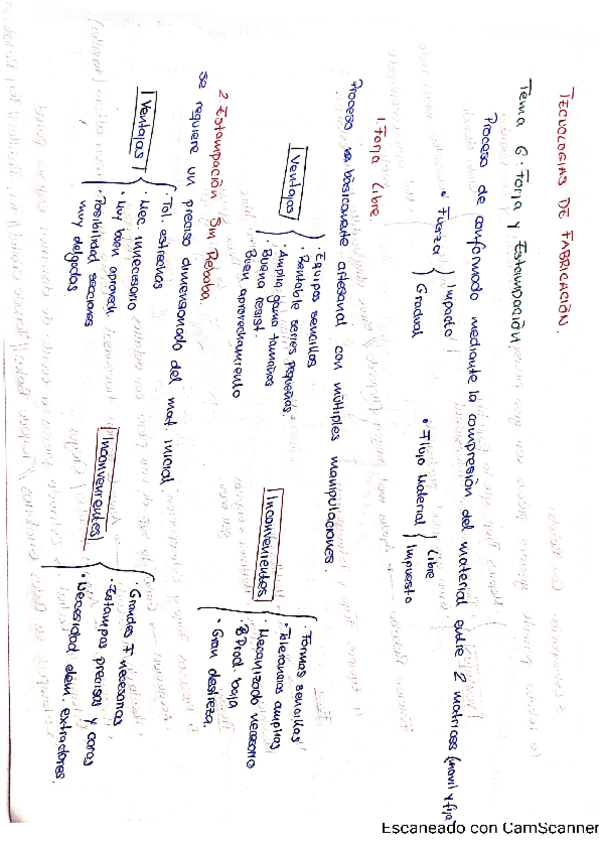 TECNOLOGIAS DE FABRICACIÓN.
Tema 6. Forja y Estampación
Proceso de conformado mediante la compresión del material entre 2 matrices (movil y fija)
• Fuerza { Impacto
Gradual
• Flujo Material { Libre
Impuesto
1. Forja Libre.
Proceso básicamente artesanal con múltiples manipulaciones.
Ventajas
· Equipos sencillos
· Rentable series pequeñas.
· Amplia gama tamaños
· Buena resist.
· Buen aprovechamiento
Inconvenientes
· Formas sencillas
· Tolerancias amplias
· Mecanizado necesario
· Prod. baja
· Gran destreza.
2 Estampación Sin Rebaba.
se requiere un preciso dimensionado del mat. inicial.
Ventajas
· Tol. estrechas
· Mec. innecesario
· Muy buen aprovech.
· Posibilidad secciones
muy delgadas
Inconvenientes
· Grandes F necesarias
· Estampas precisas y caras
· Necesidad elem. extractores.
Escaneado con CamScanner